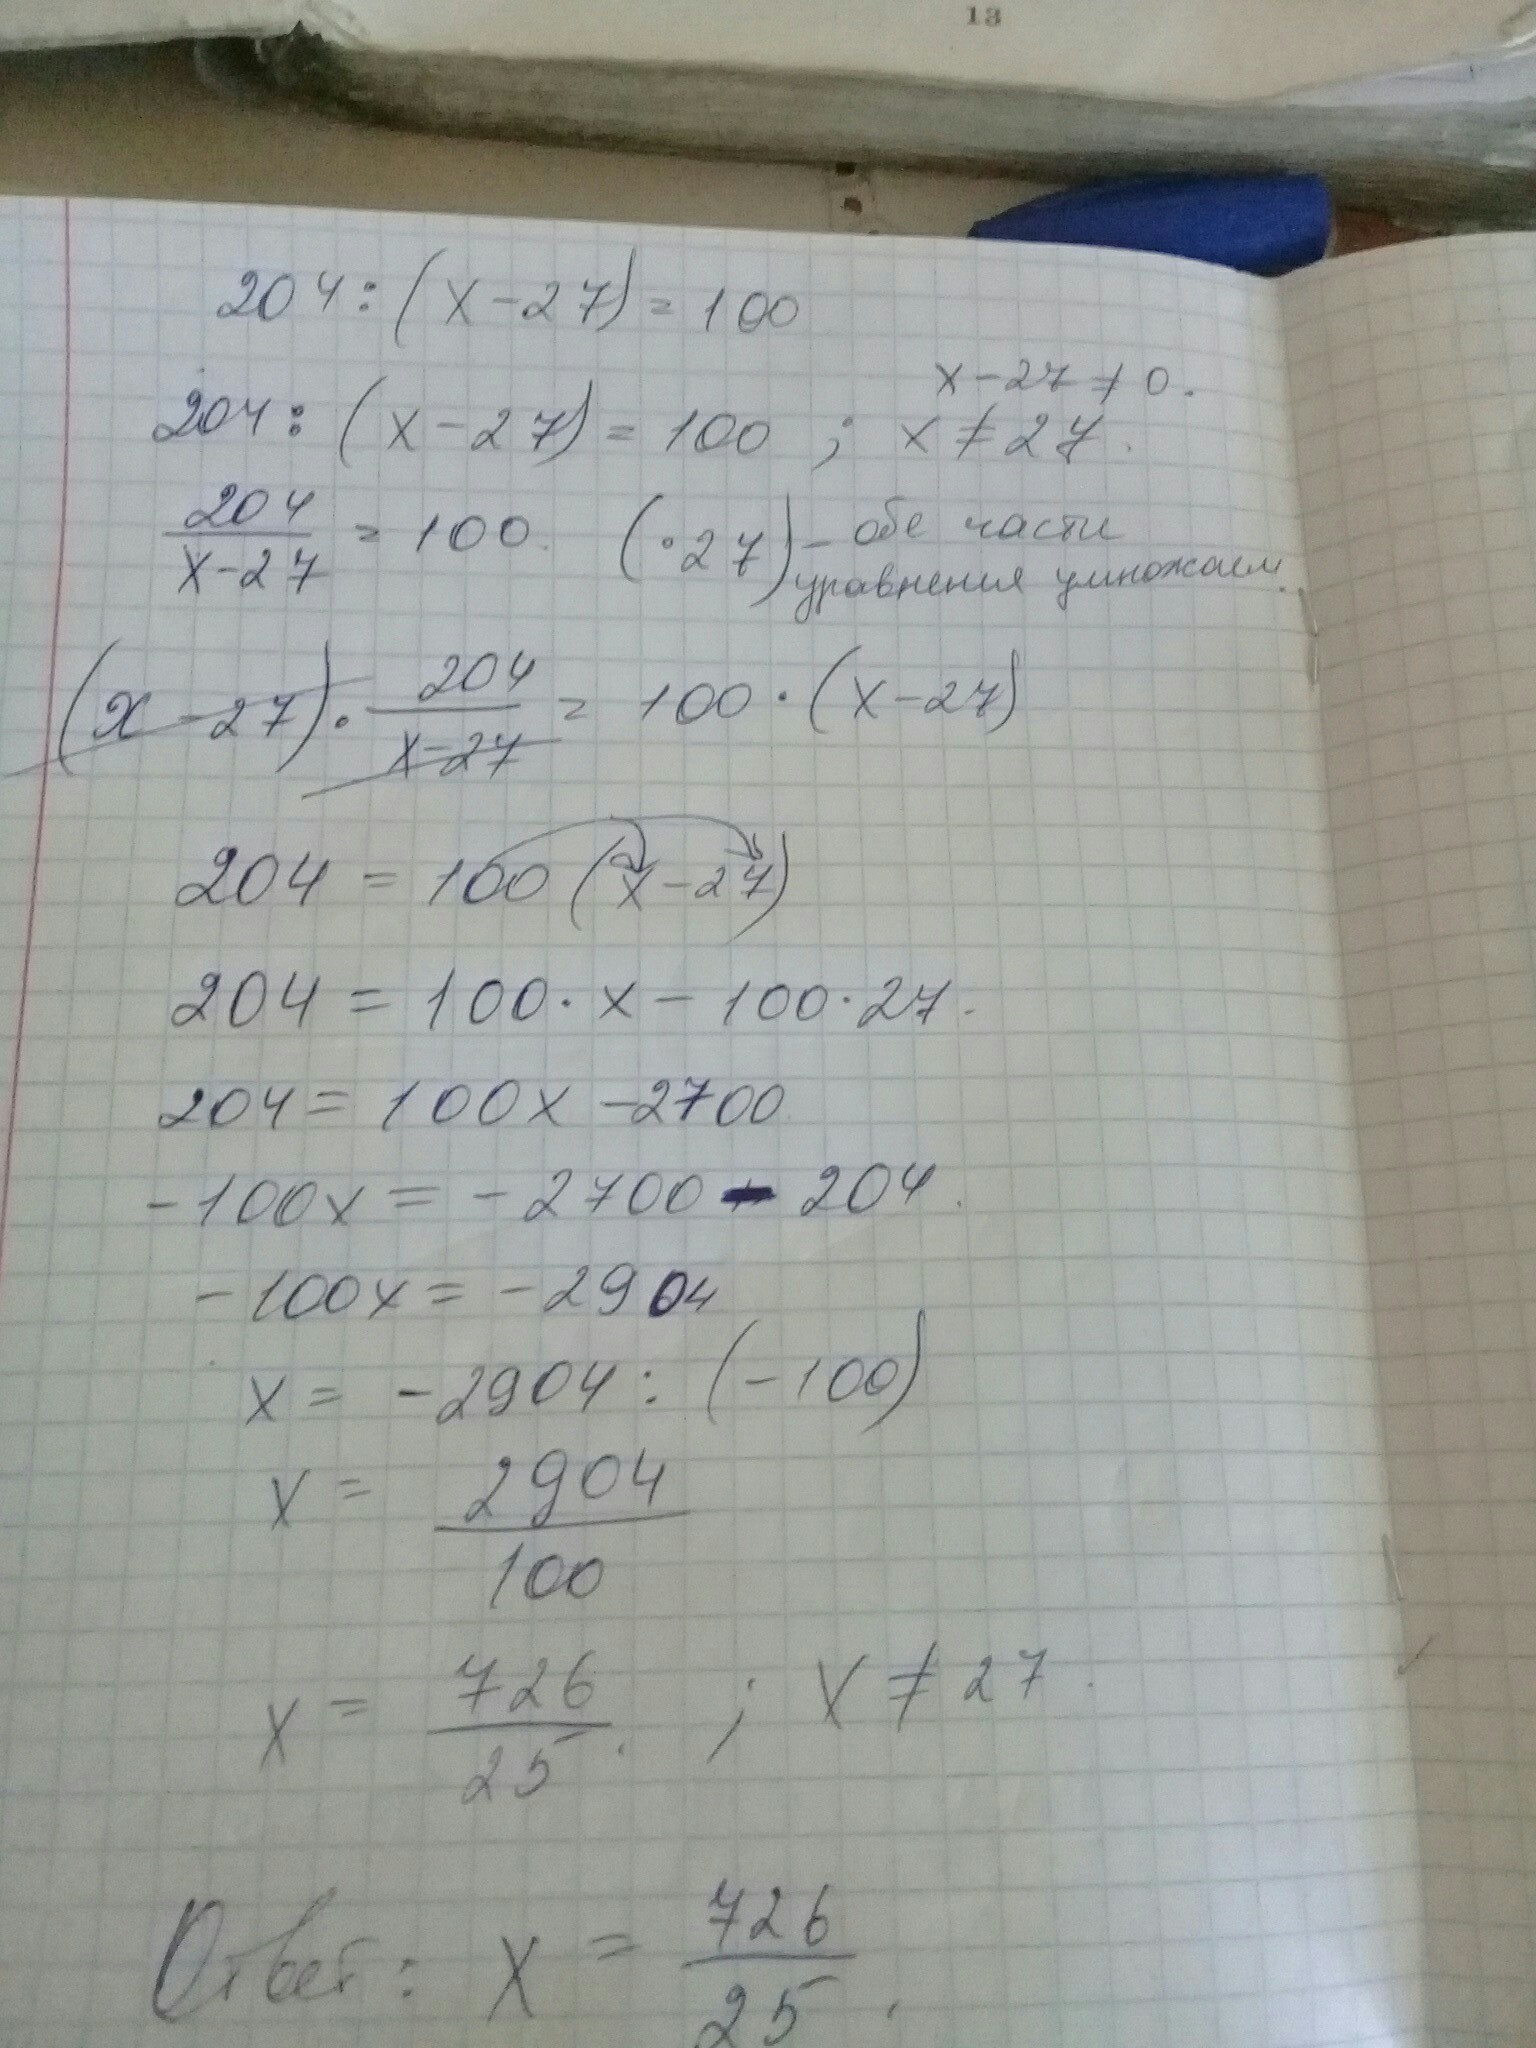 13
204:(x-27)=100
x-27≠0.
204:(x-27)=100 ; x≠27.
204/x-27 = 100. (·27) - обе части
уравнения умножаем.
(x-27)·204/x-27 = 100·(x-27)
204 = 100(x-27)
204 = 100·x-100·27.
204 = 100x-2700
-100x = -2700-204.
-100x = -2904
x = -2904:(-100)
x = 2904/100
x = 726/25. ; x≠27.
Ответ: x = 726/25.